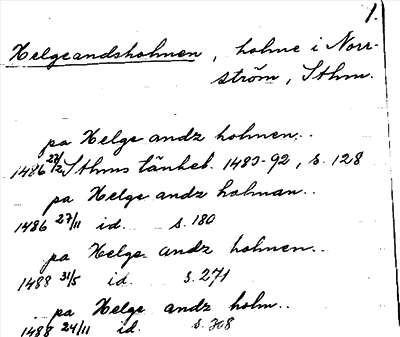 1.
Helgeandsholmen, holme i Norr-
ström, Sthm.
pa Helge andz holmen..
1486 27/2 Sthms tänkeb. 1483-92, s. 128
pa Helge andz holman..
1486 27/11 id. s. 180
pa Helge andz holmen..
1488 31/5 id. s. 271
.. pa Helge andz holm..
1488 24/11 id. s. 308